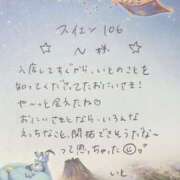 スイエン106
☆ N 様 ☆
入店してすぐから、いとのことを
知ってくださってたおにいさま!
や〜っと会えたね♡
おにいさまとなら、いろんな
えっちなこと、開拓できそうだな〜
って思っちゃった☺。
いと